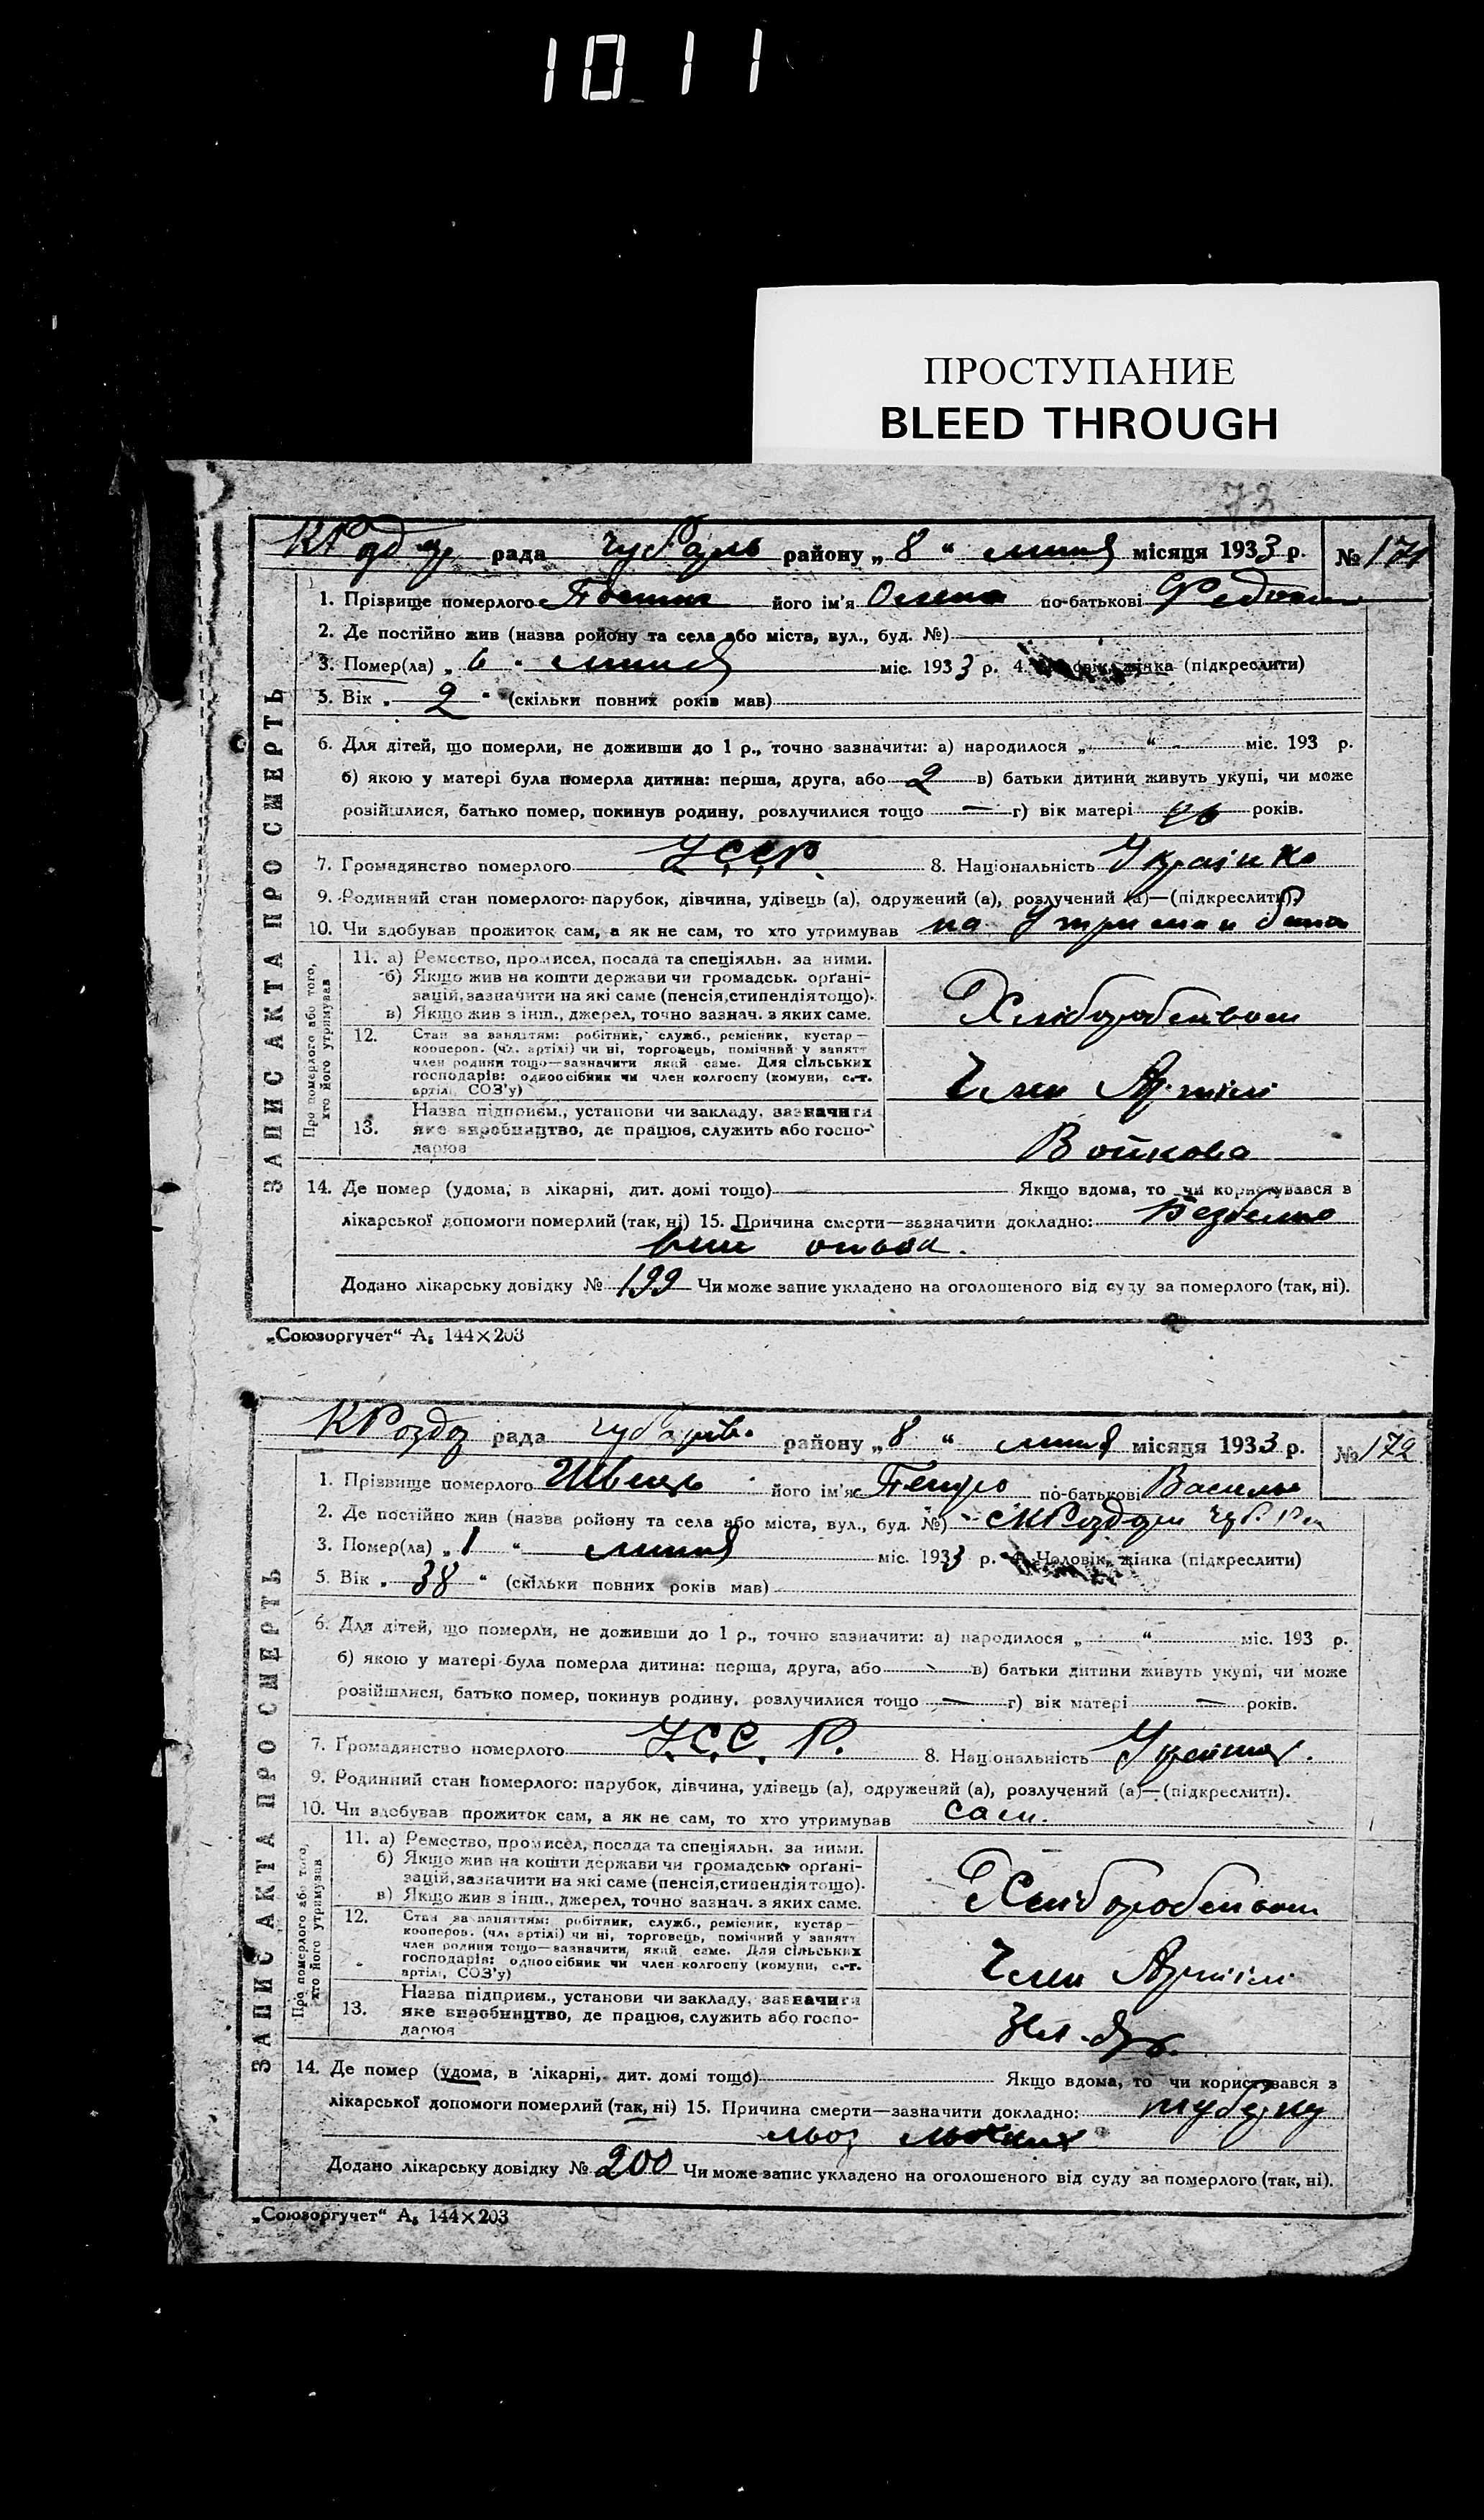 1011
ПРОСТУПАНИЕ
BLEED THROUGH
73
рада району „ 8 “ липня місяця 1933 р. № 171
ЗАПИС АКТА ПРО СМЕРТЬ
1. Прізвище померлого його ім'я Олена по-батькові
2. Де постійно жив (назва ройону та села або міста, вул., буд. №)
3. Помер(ла) „ 6 “ липня міс. 1933 р. 4. Чоловік, жінка (підкреслити)
5. Вік „ 2 “ (скільки повних років мав)
6. Для дітей, що померли, не доживши до 1 р., точно зазначити: а) народилося „ “ міс. 193 р.
б) якою у матері була померла дитина: перша, друга, або 2 в) батьки дитини живуть укупі, чи може
розійшлися, батько помер, покинув родину, розлучилися тощо — г) вік матері років.
7. Громадянство померлого У.С.С.Р. 8. Національність Українка
9. Родинний стан померлого: парубок, дівчина, удівець (а), одружений (а), розлучений (а)—(підкреслити).
10. Чи здобував прожиток сам, а як не сам, то хто утримував на утриман
Про померлого або того, хто його утримував
11. а) Ремество, промисел, посада та спеціяльн. за ними.
б) Якщо жив на кошти держави чи громадськ. орґані-
зацій, зазначити на які саме (пенсія, стипендія тощо).
в) Якщо жив з інш., джерел, точно зазнач. з яких саме.
Хліборобством
12. Стан за заняттям: робітник, служб., ремісник, кустар—
кооперов. (чл. артілі) чи ні, торговець, помічний у занятт
член родини тощо—зазначити який саме. Для сільських
господарів: одноосібник чи член колгоспу (комуни, с.-г.
артілі, СОЗ'у)
Член Артілі
13. Назва підприєм., установи чи закладу, зазначити
яке виробництво, де працює, служить або госпо-
дарює
Войкова
14. Де помер (удома, в лікарні, дит. домі тощо) Якщо вдома, то чи користувався з
лікарської допомоги померлий (так, ні) 15. Причина смерти—зазначити докладно:
Додано лікарську довідку № 199 Чи може запис укладено на оголошеного від суду за померлого (так, ні).
„Союзоргучет“ А₅ 144×203
рада району „ 8 “ липня місяця 1933 р. № 172
ЗАПИС АКТА ПРО СМЕРТЬ
1. Прізвище померлого Швець його ім'я Петро по-батькові
2. Де постійно жив (назва ройону та села або міста, вул., буд. №)
3. Помер(ла) „ 1 “ липня міс. 1933 р. 4. Чоловік, жінка (підкреслити)
5. Вік „ 38 “ (скільки повних років мав)
6. Для дітей, що померли, не доживши до 1 р., точно зазначити: а) народилося „ “ міс. 193 р.
б) якою у матері була померла дитина: перша, друга, або — в) батьки дитини живуть укупі, чи може
розійшлися, батько помер, покинув родину, розлучилися тощо — г) вік матері — років.
7. Громадянство померлого У.С.С.Р. 8. Національність
9. Родинний стан померлого: парубок, дівчина, удівець (а), одружений (а), розлучений (а)—(підкреслити).
10. Чи здобував прожиток сам, а як не сам, то хто утримував сам.
Про померлого або того, хто його утримував
11. а) Ремество, промисел, посада та спеціяльн. за ними.
б) Якщо жив на кошти держави чи громадськ. орґані-
зацій, зазначити на які саме (пенсія, стипендія тощо).
в) Якщо жив з інш., джерел, точно зазнач. з яких саме.
Хліборобством
12. Стан за заняттям: робітник, служб., ремісник, кустар—
кооперов. (чл. артілі) чи ні, торговець, помічний у занятт
член родини тощо—зазначити який саме. Для сільських
господарів: одноосібник чи член колгоспу (комуни, с.-г.
артілі, СОЗ'у)
Член Артілі
13. Назва підприєм., установи чи закладу, зазначити
яке виробництво, де працює, служить або госпо-
дарює
14. Де помер (удома, в лікарні, дит. домі тощо) Якщо вдома, то чи користувався з
лікарської допомоги померлий (так, ні) 15. Причина смерти—зазначити докладно: туберку
льоз
Додано лікарську довідку № 200 Чи може запис укладено на оголошеного від суду за померлого (так, ні).
„Союзоргучет“ А₅ 144×203